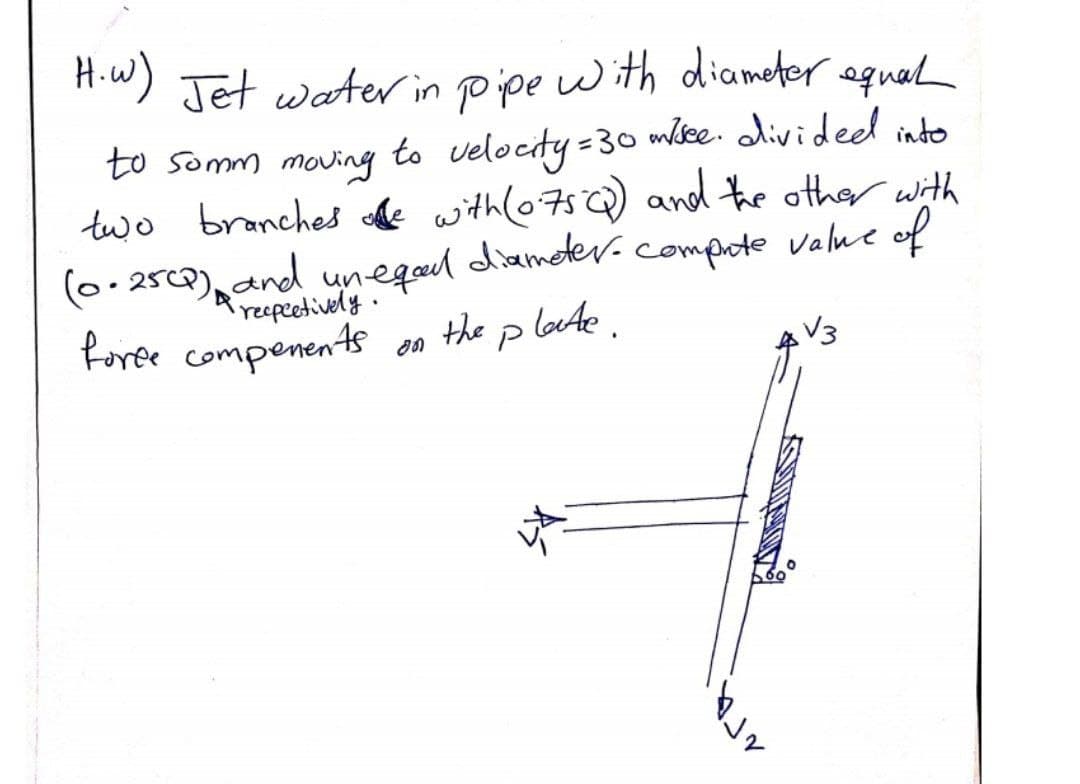 H.w) Jet water in pipe with diameter equal
to 50mm moving to velocity = 30 m/sec. divided into
two branches with (0.75Q) and the other with
(0.25Q), and unequal diameter. compute value of
recpectively.
force compenents on the plate.
V3
V1
60°
V2